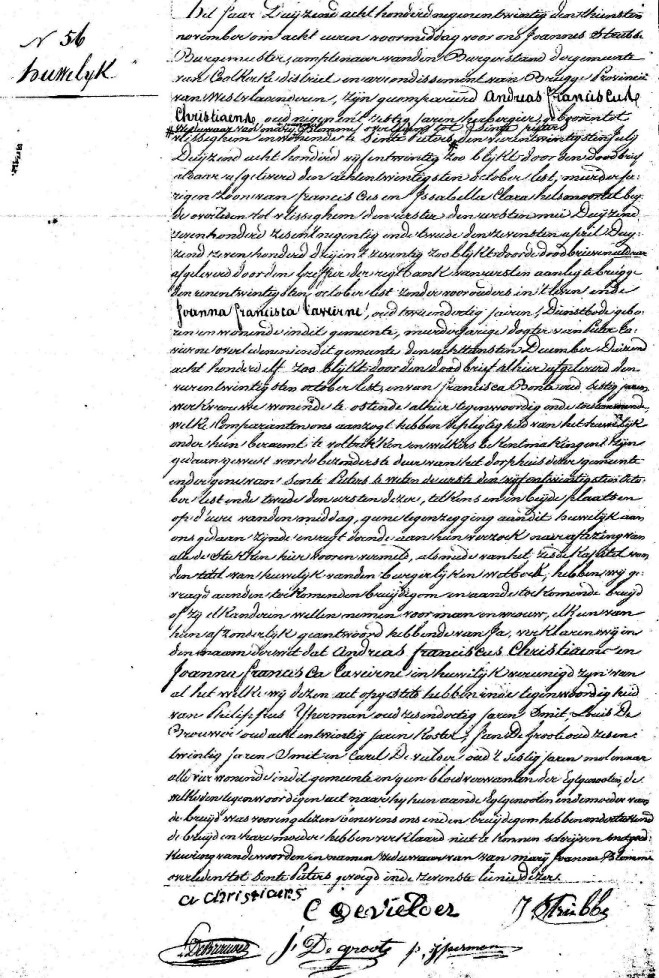 N 56
huwelyk
Het jaar Duijzend acht honderd negenentwintig den thienste
november om acht uren voormiddag voor ons Joannes Strubbe
Burgemeester, amptenaar van den Burgerstand der gemeente
van Coolkerke district en arrondissement van Brugge Provincie
van Westvlaenderen, zijn gecompareerd Andreas Franciscus
Christiaens, oud negen en t zestig jaren herbergier, geboren tot
vlisseghem en wonende te Sinte Pieters
Duijzend acht honderd vijfentwintig zoo blijkt door den doodbrief
aldaar afgeleverd den achtentwintigsten october lest, meerderja-
rigen zoon van francis Cus en Issabella Clara helsmoortel bey-
de overleden tot vlisseghem den eersten den eersten mei Duijzend
zevenhonderd zesennegentig ende tweede den zevensten april Duy-
zend zevenhonderd drij en t zeventig zoo blijkt door de doodbrieven
afgeleverd door den Greffier der regtbank van eersten aanleg te brugge
october lest zonder voorouders in 't leven ende
Joanna francisca Caveirne, oud twee en dertig jaren, Dienstbode gebo-
ren en wonende in dit gemeente, meerderjarige dogter van
overleden in dit gemeente den achttiensten December Duizend
acht honderd elf zoo blijkt door den doodbrief alhier afgeleverd den
october lest, en van francisca Bonte oud sestig jaren
werkvrouwe wonende te ostende alhier tegenwoordig ende toestemmende,
welke Comparanten ons aanzogt hebben
onder hun beraamt te voltrekken en welkers bekentmakingen zijn
gedaan geweest voor de bezonderste deur van het dorphuis dezer gemeente
ende gene van Sente Pieters te weten de eerste den vijfentwintigsten octo-
ber lest ende tweede den eersten dezer, telkens en in beyde plaatsen
op d'ure van den middag, geene tegenzegging aan dit huwelijk aan
ons gedaan zijnde en regt doende aan hun verzoek naer aflezing van
alle de stukken hier vooren vermelt, als mede van het zesde kapittel van
den titel van huwelijk van den burgerlijken wetboek, hebben wij ge-
vraagd aen den toekomenden bruijdegom en aan de toekomende bruyd
of zij elkanderen willen nemen voor man en vrouw, elk een van
hun afzonderlijk geantwoord hebbende van Ja, verklaren wij in
den naam der wet dat Andreas Franciscus Christiaens en
Joanna francisca Caveirne in huwelijk vereenigd zijn van
al het welke wij dezen act opgesteld hebben in de tegenwoordigheid
van Philippus Yperman oud zesendertig jaren Smit Louis De
Brouwer oud achtentwintig jaren Koster, Jan De Groote oud zesen-
twintig jaren Smit en Carel De vulder oud t sestig jaren molenaar
alle vier wonende in dit gemeente en geen bloedverwanten der Egtgenooten, de
welke den tegenwoordigen act naar hij hun aan de Egtgenooten ende moeder van
de bruijd was voorengelezen benevens ons en den bruijdegom hebben onderteekend
de bruijd en hare moeder hebben verklaard niet te konnen schrijven met goed-
keuring van de woorden en namen weduwaar van van marij Joanna Blomme
overleden tot Sente Pieters gevoegd in de zevenste linie dezer.
a christiaens
C Devielder
J Strubbe
Debrauwer
j De groote
p. ijperman